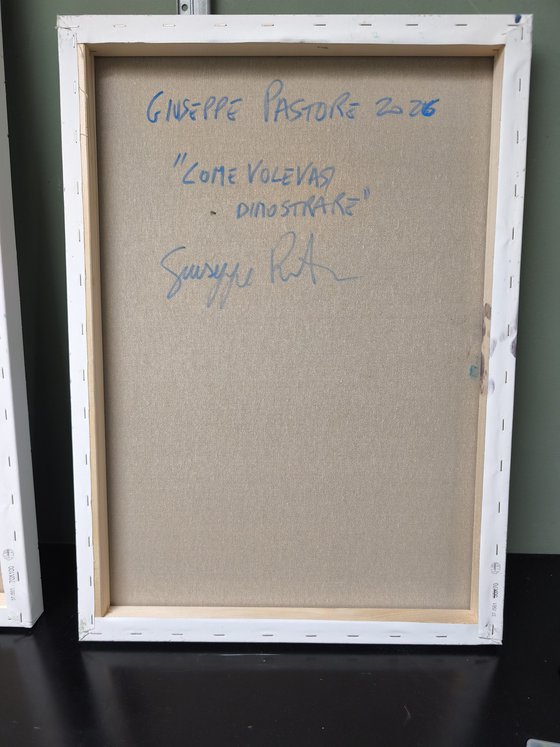 GIUSEPPE PASTORE 2026
"COME VOLEVASI
DIMOSTRARE"
Giuseppe